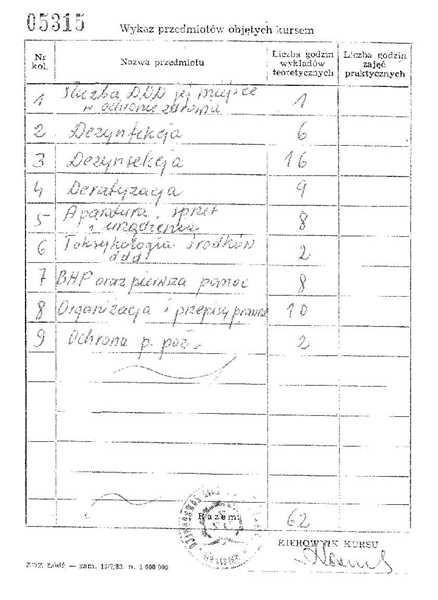 05315
Wykaz przedmiotów objętych kursem
Nr kol.
Nazwa przedmiotu
Liczba godzin wykładów teoretycznych
Liczba godzin zajęć praktycznych
1 Służba DDD jej miejsce w ochronie zdrowia 1
2 Dezynfekcja 6
3 Dezynsekcja 16
4 Deratyzacja 9
5 Aparatura, sprzęt i urządzenia 8
6 Toksykologia środków ddd 2
7 BHP oraz pierwsza pomoc 8
8 Organizacja i przepisy prawne 10
9 Ochrona p. poż. 2
Razem 62
KIEROWNIK KURSU